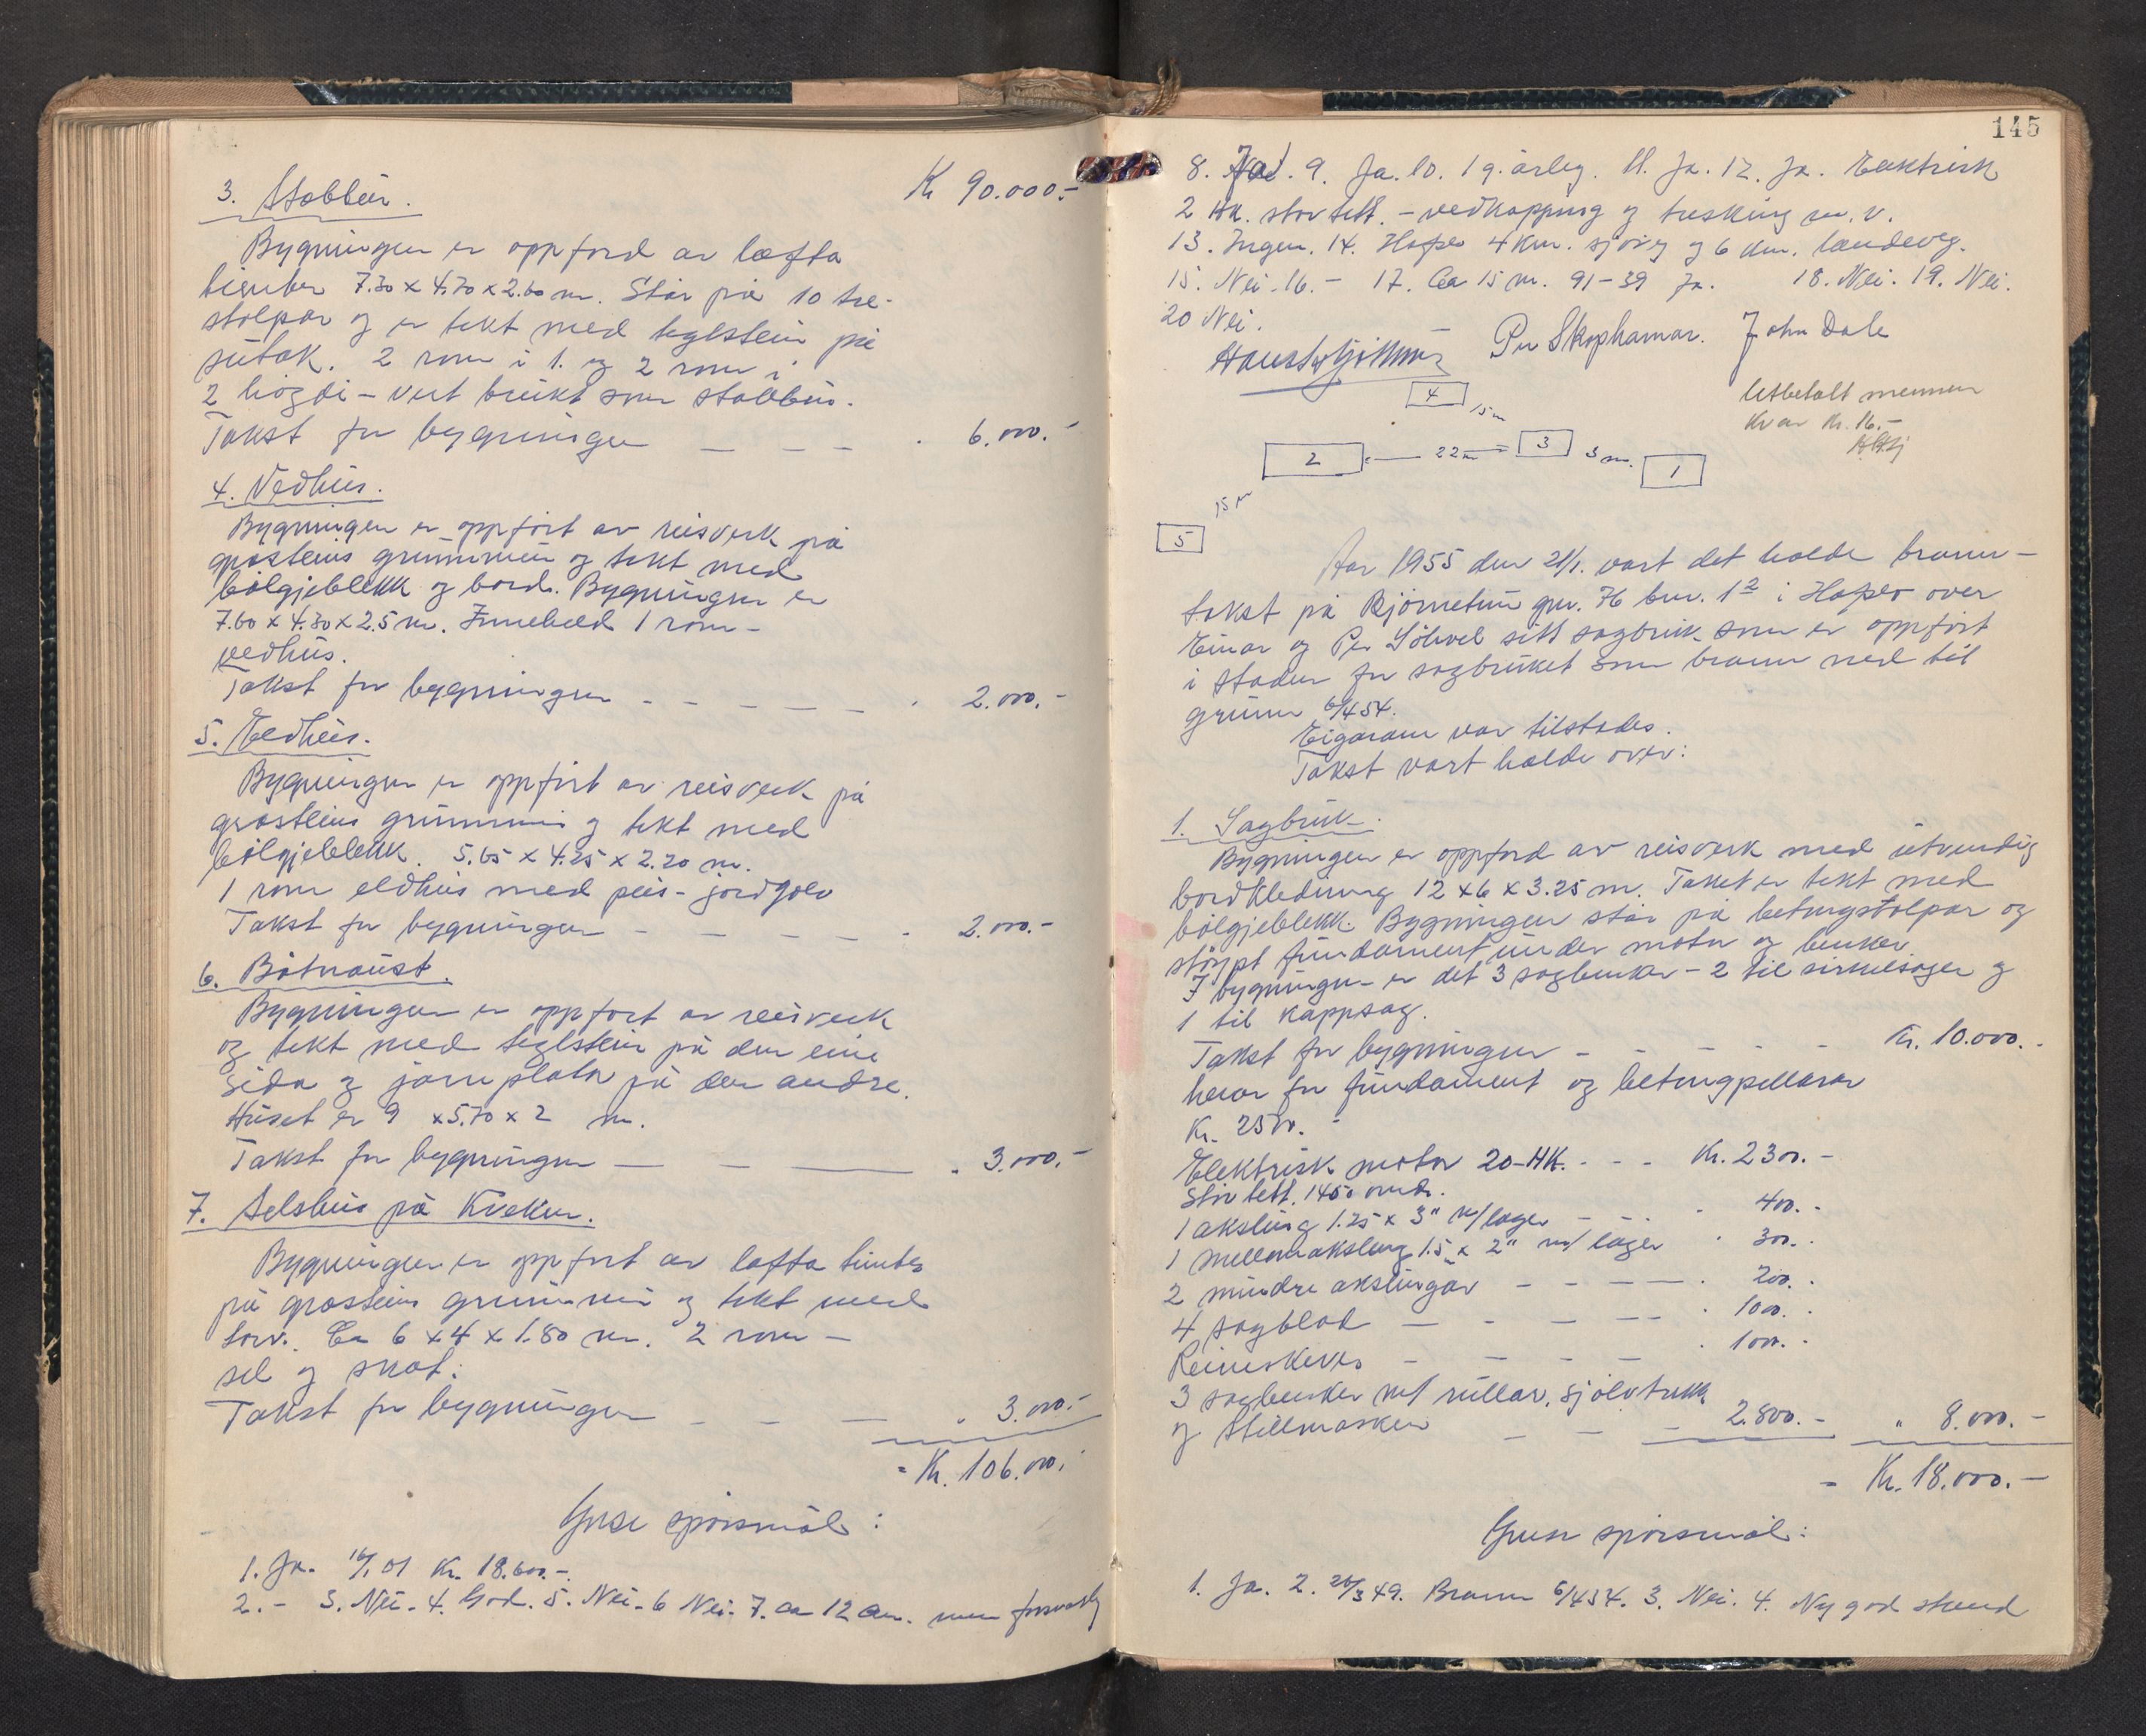 Kr 90.000.-
3. Stabbur.
Bygningen er oppförd av lofta
timber 7.30 x 4.70 x 2.60 m. Står på 10 tre-
stolpar og er tekt med teglstein på
sutak. 2 rom i 1. og 2 rom i
2 högdi - vert brukt som stabbur.
Takst for bygningen — — — . 6.000.-
4. Vedhus.
Bygningen er oppfört av reisverk på
gråsteins grunnmur og tekt med
bölgjeblekk og bord. Bygningen er
7.60 x 4.30 x 2.5 m. Inneheld 1 rom -
vedhus.
Takst for bygningen - - - - - . 2.000.-
5. Eldhus.
Bygningen er oppfört av reisverk på
gråsteins grunnmur og tekt med
bölgjeblekk. 5.65 x 4.25 x 2.20 m.
1 rom eldhus med peis - jordgolv
Takst for bygningen - - - - . 2.000.-
6. Båtnaust.
Bygningen er oppfört av reisverk
og tekt med teglstein på den eine
sida og jarnplater på den andre.
Huset er 9 x 5.70 x 2 m.
Takst for bygningen — - — . 3.000.-
7. Selshus på Kvekur.
Bygningen er oppfört av lofta timber
på gråsteins grunnmur og tekt med
torv. Ca 6 x 4 x 1.80 m. 2 rom -
sel og skot.
Takst for bygningen - - — . 3.000.-
= Kr. 106.000.-
Ymse spörsmål:
1. Ja. 16/1 01 Kr. 18.600.-.
2. - 3. Nei. 4. God. 5. Nei. 6 Nei. 7. ca 12 cm. men forsvarleg
145
8. Ja. 9. Ja. 10. 1 g. årleg. 11. Ja. 12. Ja. Elektrisk
2 HK. stov tett. - vedkapping og tresking m. v.
13. Ingen. 14. Hafslo 4 km. sjöveg og 6 km. landeveg.
15. Nei. 16. - 17. Ca 15 m. 91-39 Ja. 18. Nei. 19. Nei.
20 Nei.
Per Skophamar. John Dale
Utbetalt mennene
kvar kr. 16.-
4 15 m
2 — 22 m — 3 3 m. 1
15 m
5
Aar 1955 den 21/1. vart det halde brann-
takst på Bjørnetun gnr. 76 bnr. 12 i Hafslo over
Einar og Per Sölvel sitt sagbruk som er oppfört
i staden for sagbruket som brann ned til
grunn 6/4 54.
Eigarane var tilstades.
Takst vart halde over:
1. Sagbruk.
Bygningen er oppförd av reisverk med utvendig
bordkledning 12 x 6 x 3.25 m. Taket er tekt med
bölgjeblekk. Bygningen står på betongstolpar og
stöypt fundament under motor og benker.
I bygningen er det 3 sagbenker - 2 til sirkelsager og
1 til kappsag.
Takst for bygningen - - - - - Kr. 10.000.-
herav for fundament og betongpillarar
Kr. 2500.-
Elektrisk motor 20-HK. - - - Kr. 2300.-
Stov tett. 1450 omdr.
1 aksling 1.25 x 3" m/lager - - . 400.-
1 mellomaksling 1.5 x 2" m/ lager . 300.-
2 mindre akslingar - - - — . 200.-
4 sagblad — - - — . 1000.-
Reimskiver - - - — . 1000.-
3 sagbenker m/ rullar, sjölvtrekk
og stillmaskin - - - 2.800.- " 8.000.-
= Kr. 18.000.-
Ymse spörsmål:
1. Ja. 2. 26/3 49. Brann 6/4 54. 3. Nei. 4. Ny god stand